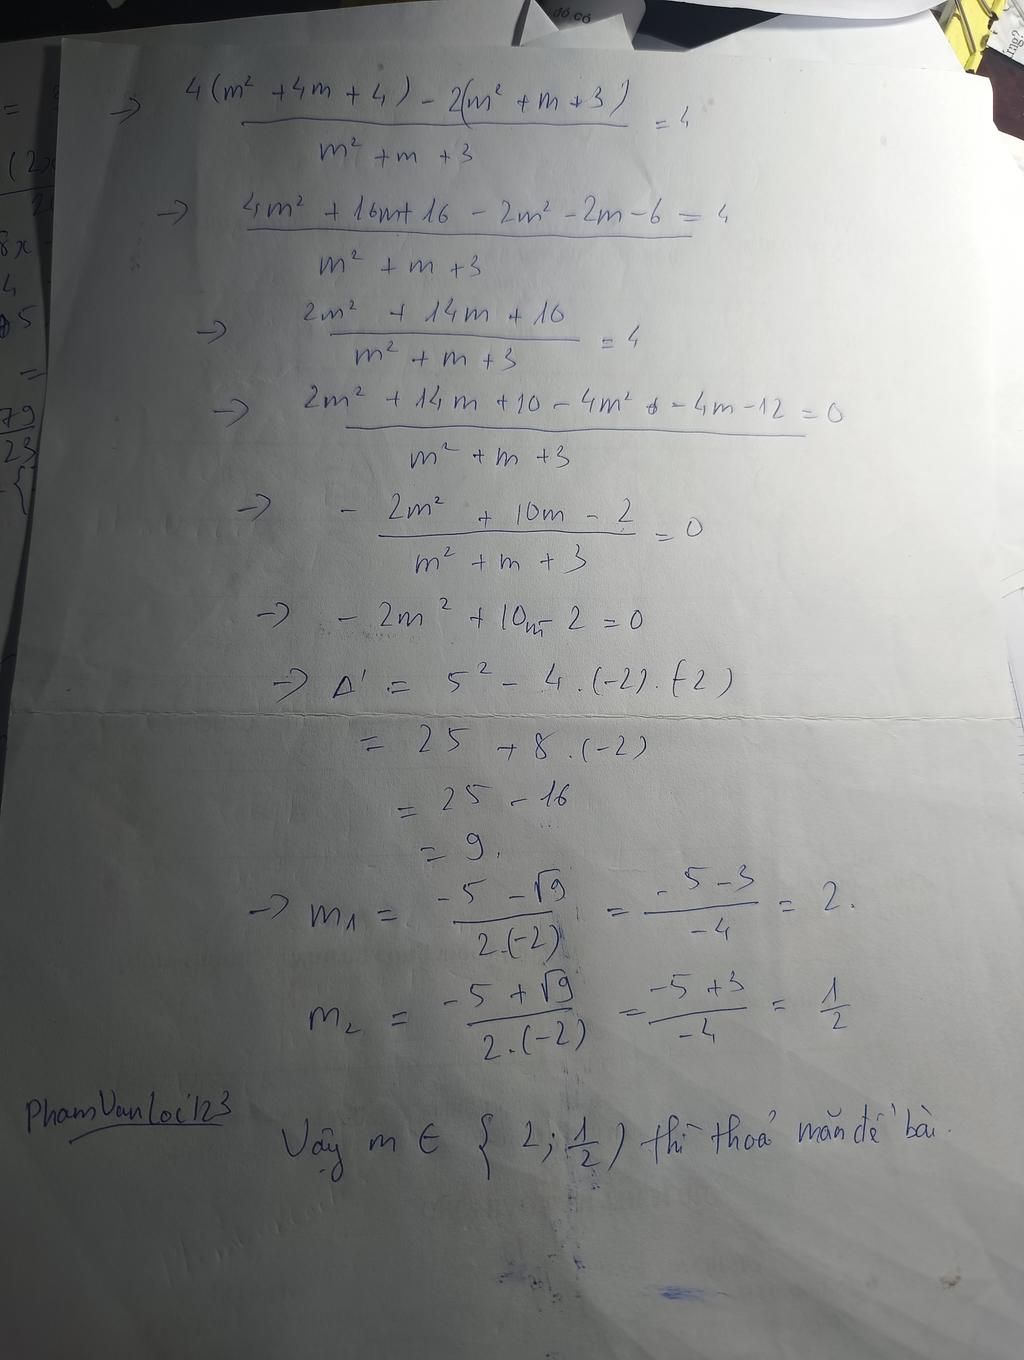 đó, có
ứng?
→ 4(m² + 4m + 4) - 2(m² + m + 3) / m² + m + 3 = 4
→ 4m² + 16m + 16 - 2m² - 2m - 6 / m² + m + 3 = 4
→ 2m² + 14m + 10 / m² + m + 3 = 4
→ 2m² + 14m + 10 - 4m² - 4m - 12 / m² + m + 3 = 0
→ - 2m² + 10m - 2 / m² + m + 3 = 0
→ - 2m² + 10m - 2 = 0
→ Δ' = 5² - 4 . (-2) . (-2)
= 25 + 8 . (-2)
= 25 - 16
= 9.
→ m₁ = -5 - √9 / 2.(-2) = -5 - 3 / -4 = 2.
m₂ = -5 + √9 / 2.(-2) = -5 + 3 / -4 = 1/2
PhamVanLoc123
Vậy m ∈ { 2; 1/2 ) thì thoả mãn đề bài.